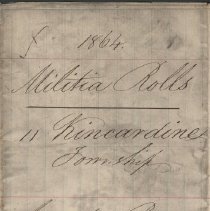 1864.
Militia Rolls
11 Kincardine
Township